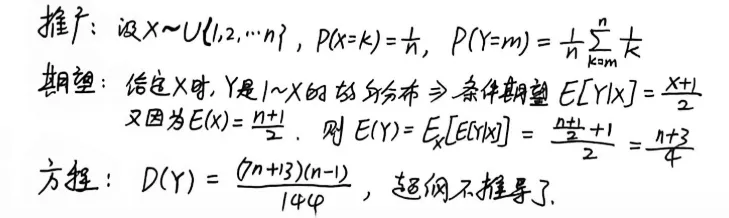 推广：设X~U{1,2,…n}，P(X=k)=1/n，P(Y=m)=1/n ∑_{k=m}^{n} 1/k
期望：给定X时，Y是1~X的均匀分布⇒条件期望E[Y|X]=(X+1)/2
又因为E(X)=(n+1)/2．则E(Y)=E_X[E(Y|X)]=((n+1)/2+1)/2=(n+3)/4
方程：D(Y)=(7n+13)(n-1)/144，超纲不推导了．